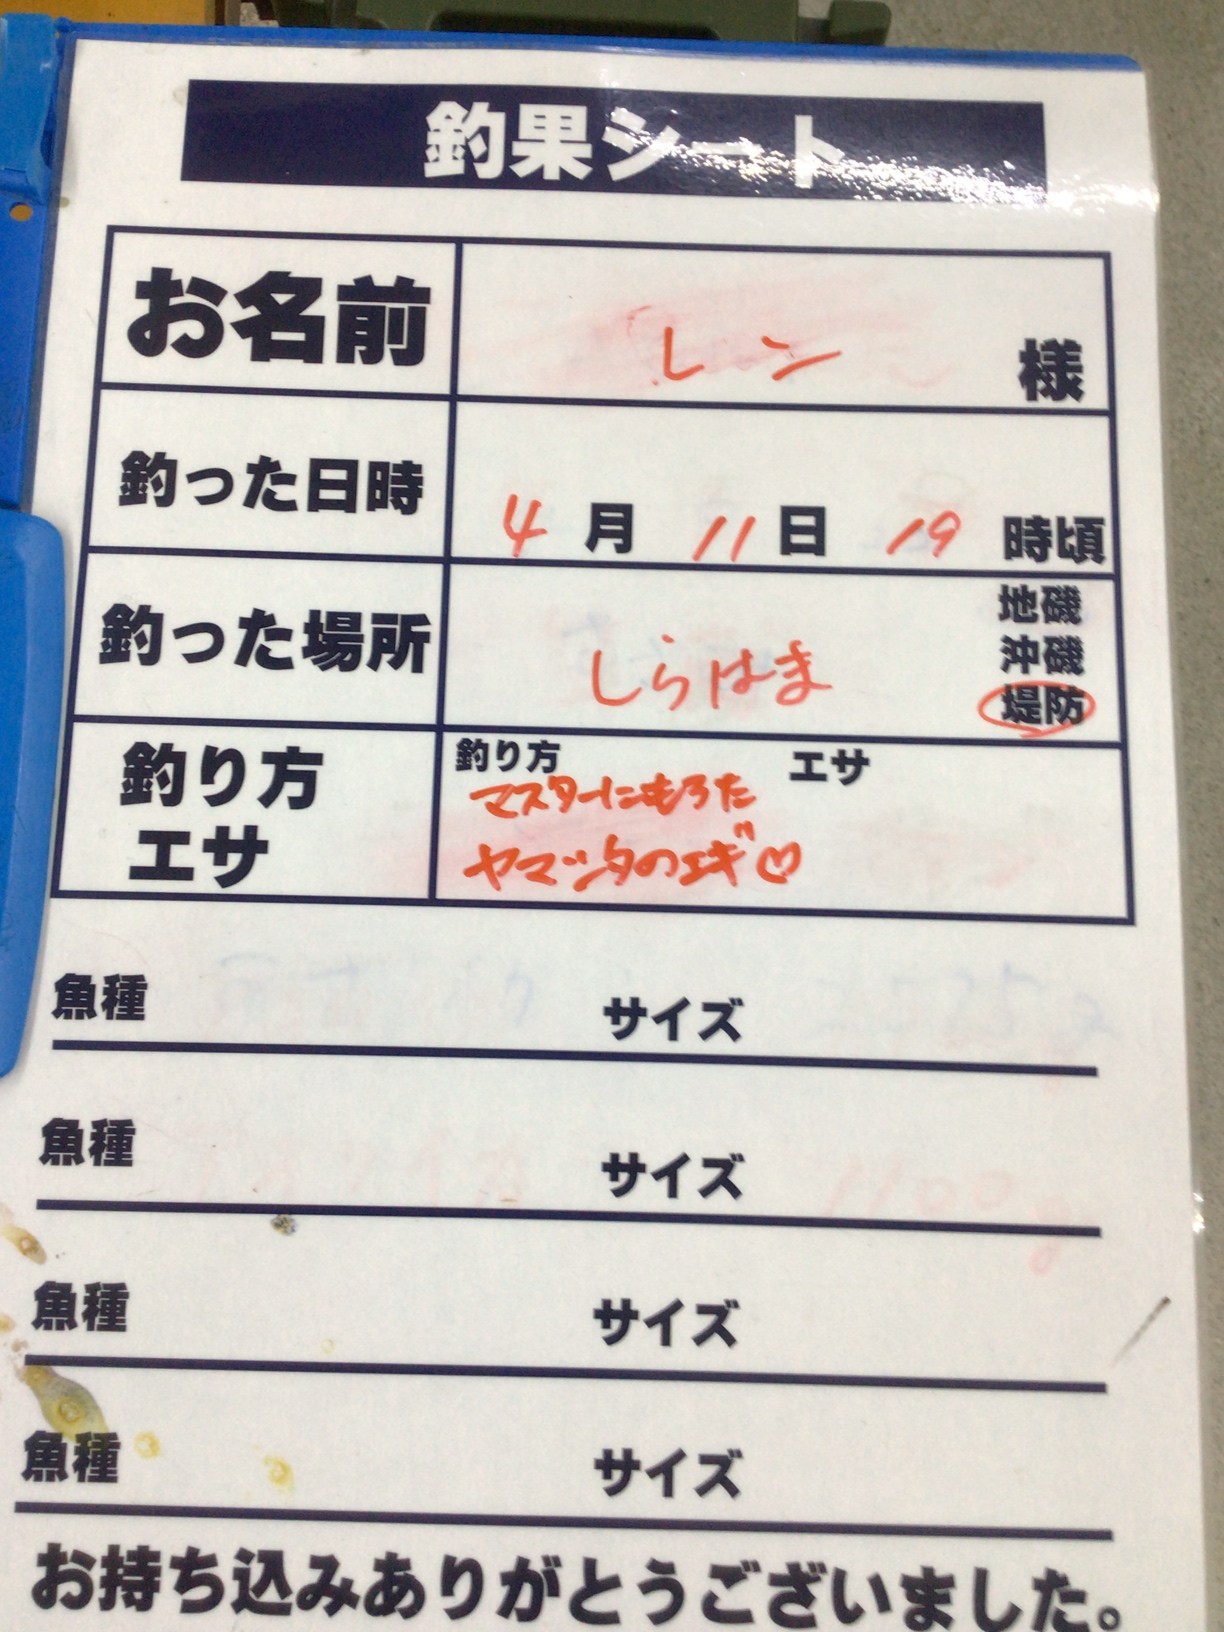 釣果シート
お名前 レン 様
釣った日時 4月 11日 19 時頃
釣った場所 しらはま 地磯 沖磯 堤防
釣り方 エサ
釣り方 エサ
マスターにもろた
ヤマシタのエギ♡
魚種 サイズ
魚種 サイズ 1100g
魚種 サイズ
魚種 サイズ
お持ち込みありがとうございました。